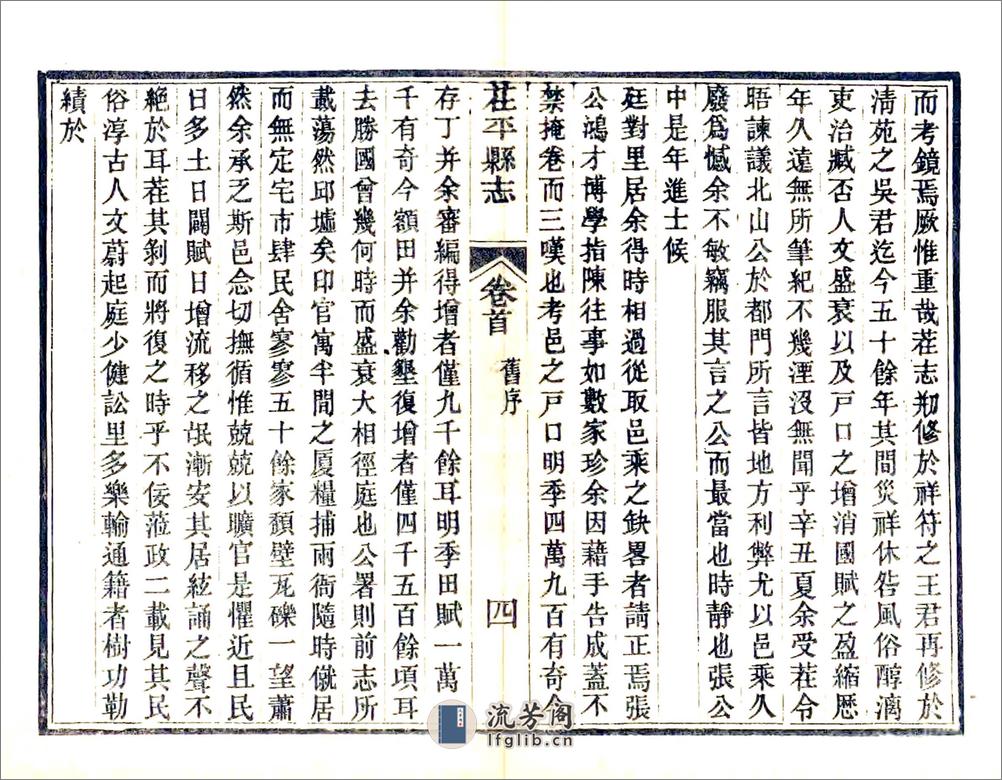 而考鏡焉厥惟重哉茬志刱修於祥符之王君再修於
清苑之吳君迄今五十餘年其間災祥休咎風俗醇漓
吏治臧否人文盛衰以及戸口之增消國賦之盈縮歷
年久遠無所筆紀不幾湮沒無聞乎辛丑夏余受茬令
晤諫議北山公於都門所言皆地方利弊尤以邑乘久
廢爲憾余不敏竊服其言之公而最當也時靜也張公
中是年進士候
廷對里居余得時相過從取邑乘之缺畧者請正焉張
公鴻才博學指陳往事如數家珍余因藉手告成蓋不
禁掩卷而三嘆也考邑之戸口明季四萬九百有奇今
茌平縣志
卷首
舊序
四
存丁并余審編得增者僅九千餘耳明季田賦一萬
千有奇今額田并余勸墾復增者僅四千五百餘頃耳
去勝國曾幾何時而盛衰大相徑庭也公署則前志所
載蕩然邱墟矣印官寓半間之廈糧捕兩衙隨時僦居
而無定宅市肆民舍寥寥五十餘家頹壁瓦礫一望蕭
然余承乏斯邑念切撫循惟兢兢以曠官是懼近且民
日多土日闢賦日增流移之氓漸安其居絃誦之聲不
絶於耳茬其剝而將復之時乎不佞蒞政二載見其民
俗淳古人文蔚起庭少健訟里多樂輸通籍者樹功勒
績於
流芳阁
lfglib.cn